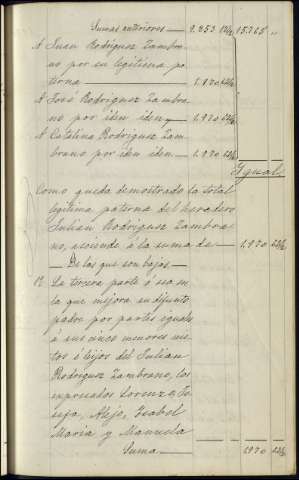 Sumas anteriores — 9.853 12½ 15.765 "
A Juan Rodriguez Zambra-
no por su legitima pa-
terna — 1.970 22½
A José Rodriguez Zambra-
no por iden iden — 1.970 22½
A Catalina Rodriguez Zam-
brano por iden iden — 1.970 22½
Ygual
Como queda demostrado la total
legitima paterna del heredero
Julian Rodriguez Zambra-
no, asciende á la suma de — 1.970 22½
De las que son bajas —
1ª La tercera parte ó sea
la que mejora su difunto
padre por partes iguales
á sus cinco menores nie-
tos é hijos del Julian
Rodriguez Zambrano, los
expresados Lorenzo, Jo-
sefa, Alejo, Isabel
Maria y Manuela
Suma — 1970 22½